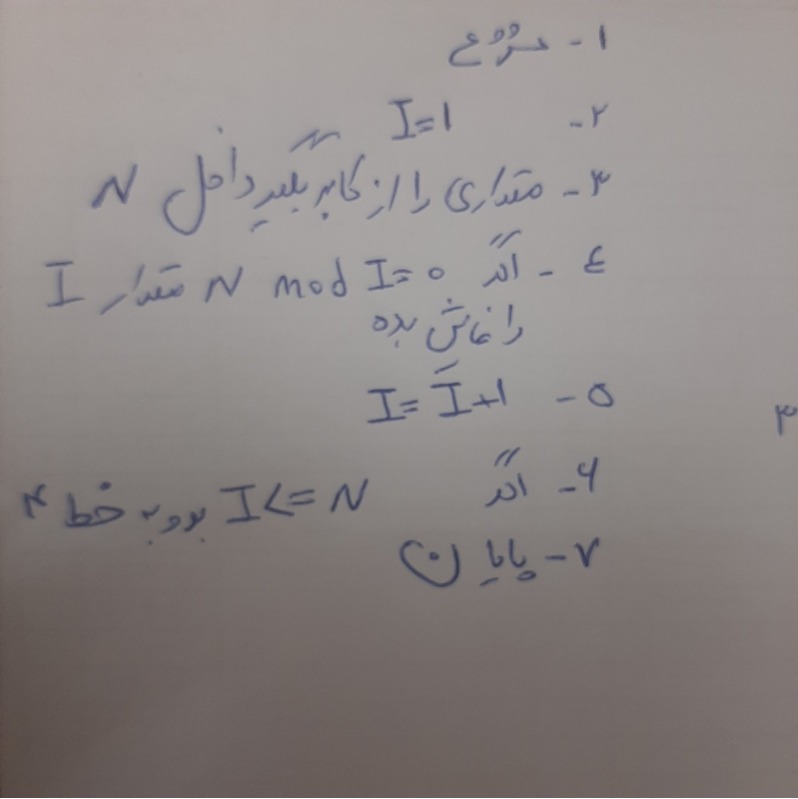 ۱- شروع
۲- I=1
۳- مقداری را از کاربر بگیر داخل N
٤- اگر N mod I=0 مقدار I
را نمایش بده
۵- I=I+1
۶- اگر I<=N بود به خط ۴
۷- پایان
۳